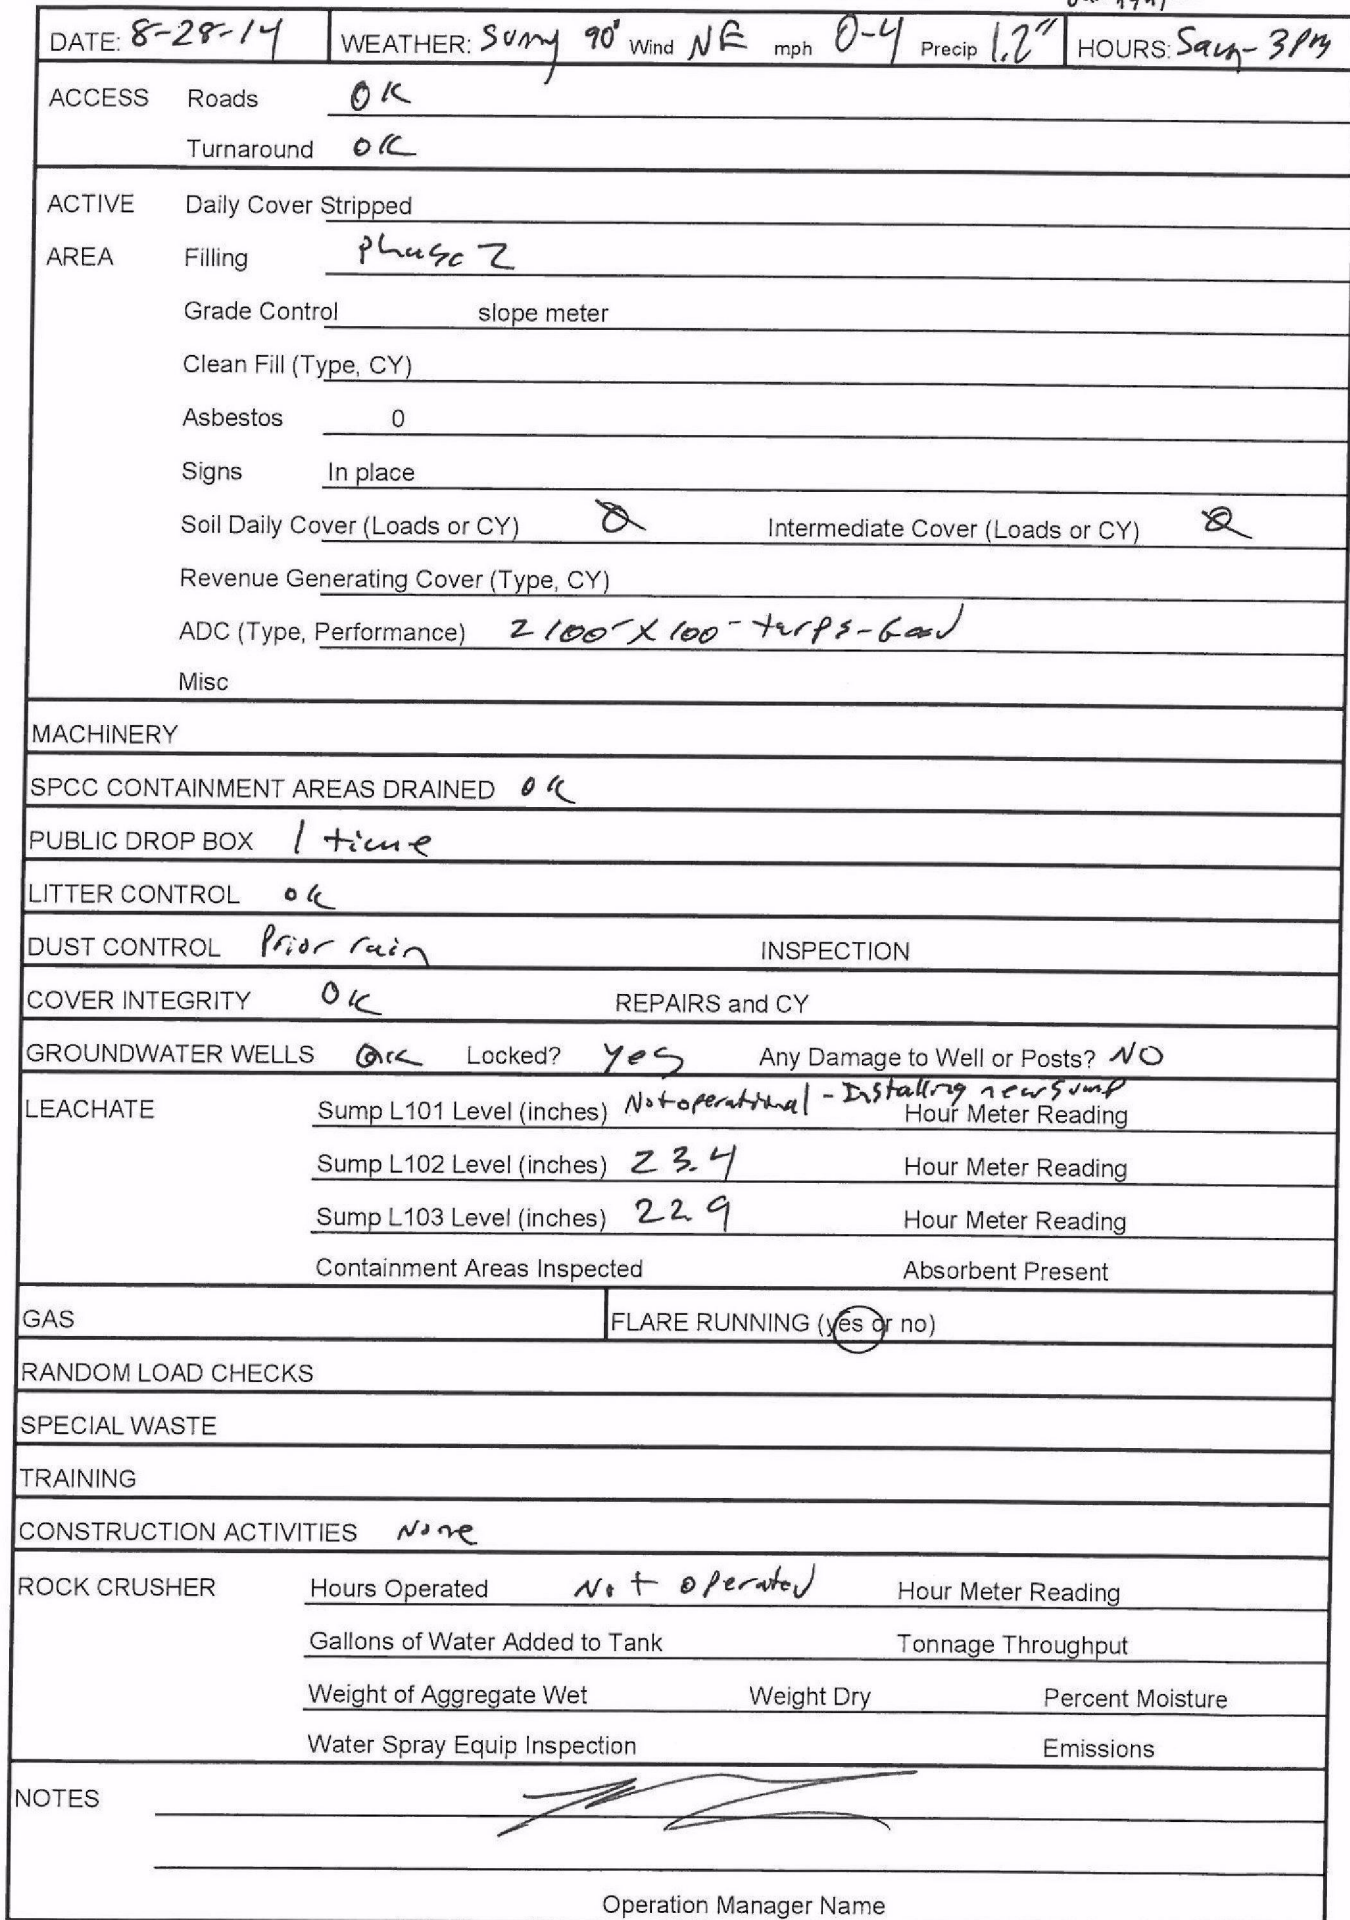 DATE: 8-28-14 WEATHER: Sunny 90° Wind NE mph 0-4 Precip 1.2" HOURS: 5am-3pm
ACCESS Roads OK
Turnaround OK
ACTIVE Daily Cover Stripped
AREA Filling Phase 2
Grade Control slope meter
Clean Fill (Type, CY)
Asbestos 0
Signs In place
Soil Daily Cover (Loads or CY) 0 Intermediate Cover (Loads or CY) 0
Revenue Generating Cover (Type, CY)
ADC (Type, Performance) 2 100' X 100' tarps-Good
Misc
MACHINERY
SPCC CONTAINMENT AREAS DRAINED OK
PUBLIC DROP BOX 1 time
LITTER CONTROL OK
DUST CONTROL Prior rain INSPECTION
COVER INTEGRITY OK REPAIRS and CY
GROUNDWATER WELLS OK Locked? Yes Any Damage to Well or Posts? NO
LEACHATE Sump L101 Level (inches) Not operational - Installing new sump Hour Meter Reading
Sump L102 Level (inches) 23.4 Hour Meter Reading
Sump L103 Level (inches) 22.9 Hour Meter Reading
Containment Areas Inspected Absorbent Present
GAS FLARE RUNNING (yes or no)
RANDOM LOAD CHECKS
SPECIAL WASTE
TRAINING
CONSTRUCTION ACTIVITIES None
ROCK CRUSHER Hours Operated Not operated Hour Meter Reading
Gallons of Water Added to Tank Tonnage Throughput
Weight of Aggregate Wet Weight Dry Percent Moisture
Water Spray Equip Inspection Emissions
NOTES
Operation Manager Name